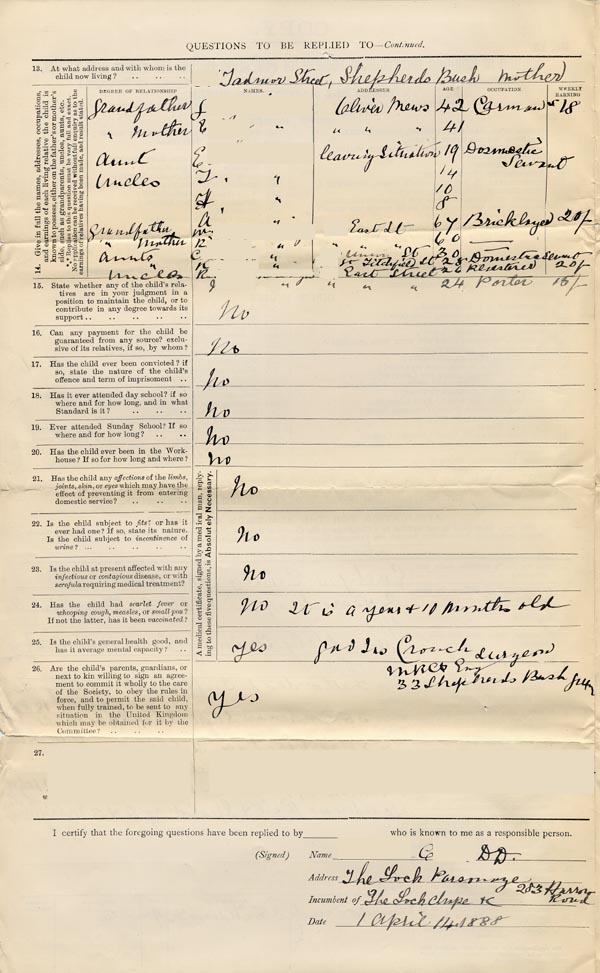 QUESTIONS TO BE REPLIED TO—Continued.
13. At what address and with whom is the
child now living? .. .. ..
Tadmor Street, Shepherds Bush Mother
14. Give in full the names, addresses, occupations,
and earnings of each living relative the child is
known to possess, either on the father's or mother's
side, such as grandparents, uncles, aunts, etc.
DEGREE OF RELATIONSHIP NAMES. ADDRESSES AGE OCCUPATION WEEKLY EARNING
Grandfather J Oliver Mews 42 Carman 18
" Mother E " " " 41
Aunt E " leaving Situation 19 Domestic Servant
Uncles T " 14
" 10
H " 8
Grandfather A " East St 67 Bricklayer 20/-
" Mother " 60
Aunts C " Union St 30 Domestic Servant
Uncles R East Street 20/-
J " " " 24 Porter
15. State whether any of the child's rela-
tives are in your judgment in a
position to maintain the child, or to
contribute in any degree towards its
support .. .. .. .. ..
No
16. Can any payment for the child be
guaranteed from any source? exclu-
sive of its relatives, if so, by whom?
No
17. Has the child ever been convicted? if
so, state the nature of the child's
offence and term of imprisoment ..
No
18. Has it ever attended day school? if so
where and for how long, and in what
Standard is it? .. .. ..
No
19. Ever attended Sunday School? If so
where and for how long? .. ..
No
20. Has the child ever been in the Work-
house? If so for how long and where?
No
A medical certificate, signed by a medical man, reply-
ing to these five questions, is Absolutely Necessary.
21. Has the child any affections of the limbs,
joints, skin, or eyes which may have the
effect of preventing it from entering
domestic service? .. .. ..
No
22. Is the child subject to fits? or has it
ever had one? If so, state its nature.
Is the child subject to incontinence of
urine? ... .. .. .. ..
No
23. Is the child at present affected with any
infectious or contagious disease, or with
scrofula requiring medical treatment?
No
24. Has the child had scarlet fever or
whooping cough, measles, or small pox?
If not the latter, has it been vaccinated?
No It is a year & 10 Months old
25. Is the child's general health good, and
has it average mental capacity? ..
Yes Crouch Surgeon
MRCS Eng
33 Shepherds Bush Green
26. Are the child's parents, guardians, or
next to kin willing to sign an agree-
ment to commit it wholly to the care
of the Society, to obey the rules in
force, and to permit the said child,
when fully trained, to be sent to any
situation in the United Kingdom
which may be obtained for it by the
Committee? .. .. ..
Yes
27.
I certify that the foregoing questions have been replied to by who is known to me as a responsible person.
(Signed) Name C DD.
Address The Lock Parsonage 283 Harrow Road
Incumbent of The Lock Chapel
Date April 14 1888